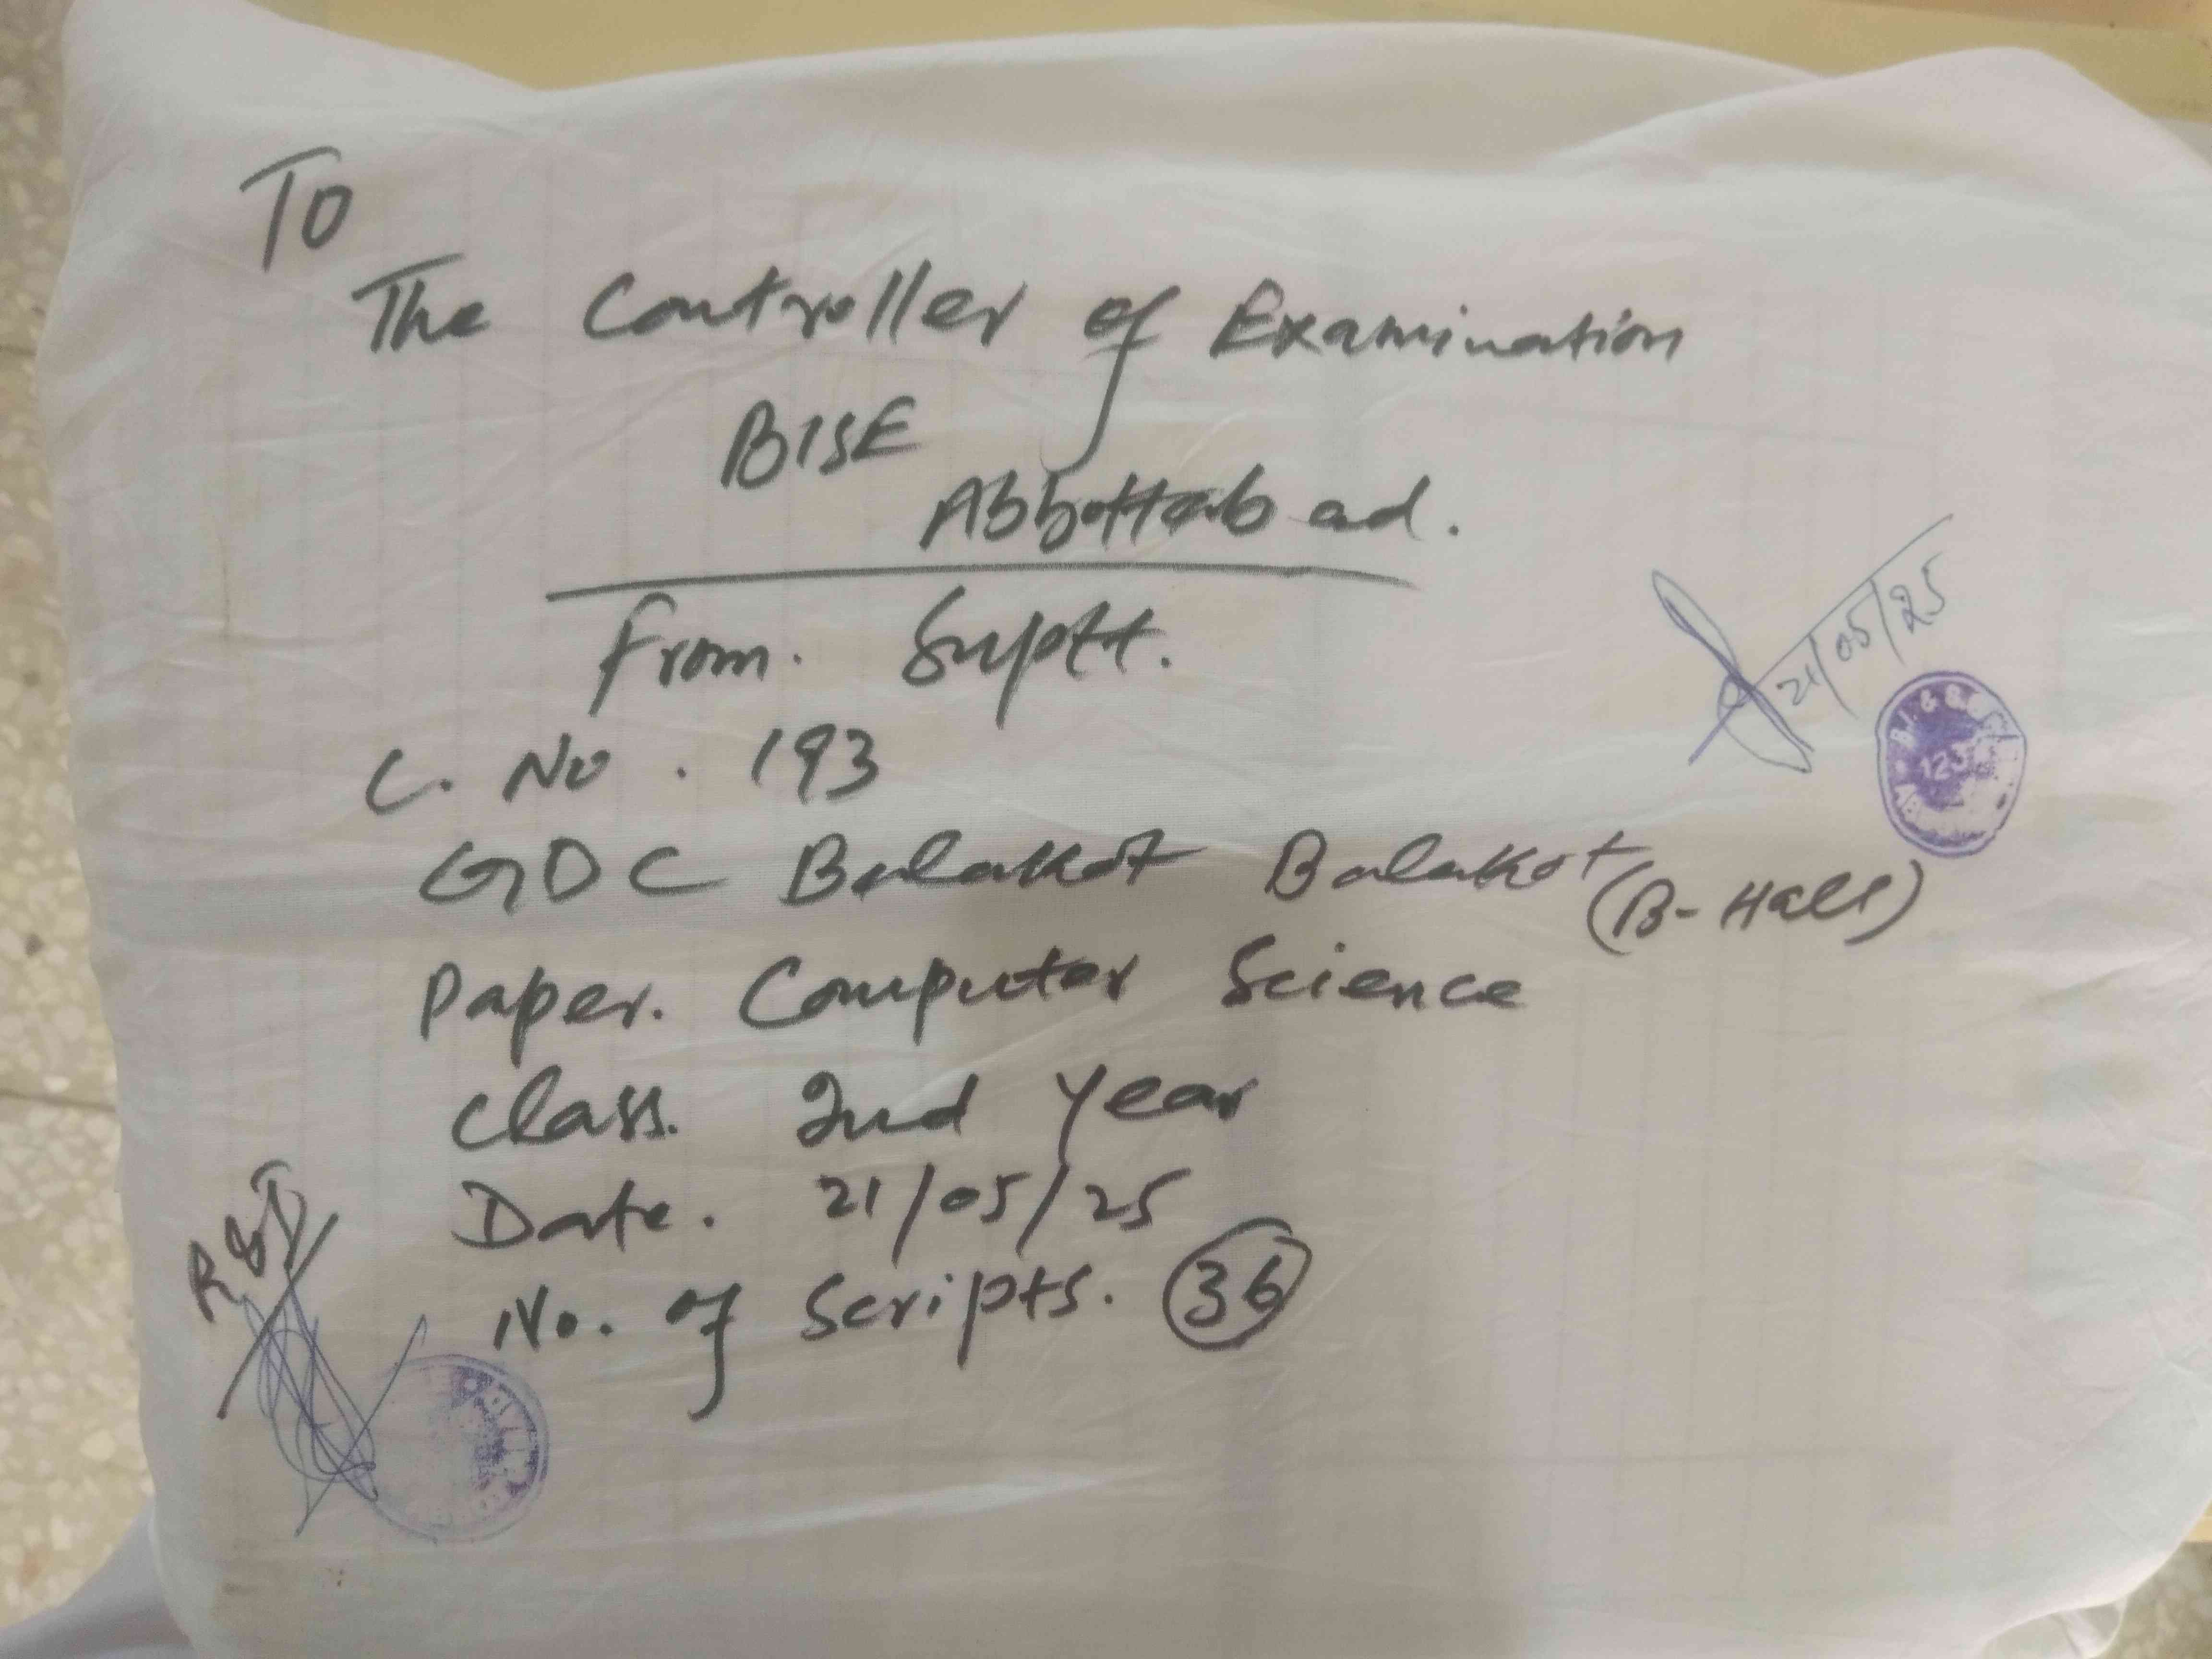 To
The Controller of Examination
BISE
Abbottabad.
From. Suptt.
21/05/25
C. No. 193
123
GDC Balakot Balakot (B-Hall)
Paper. Computer Science
Class. 2nd Year
Date. 21/05/25
No. of Scripts. 36